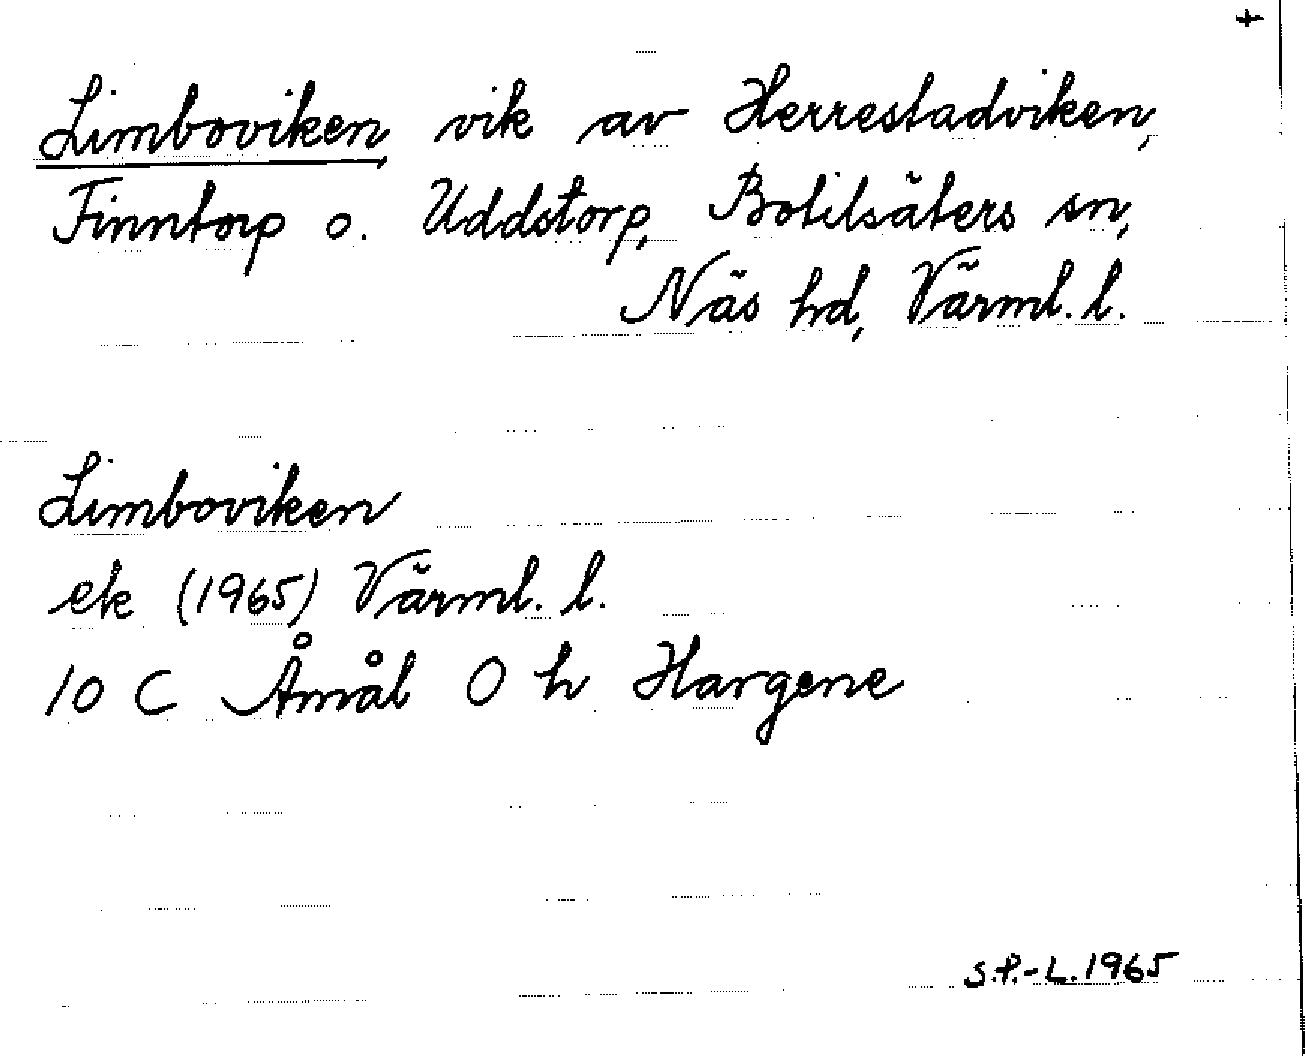 +
Limboviken, vik av Herrestadviken,
Finntorp o. Uddstorp, Botilsäters sn,
Näs hd, Värml. l.
Limboviken
ek (1965) Värml. l.
10 C Åmål O h Hargene
S.P.-L. 1965